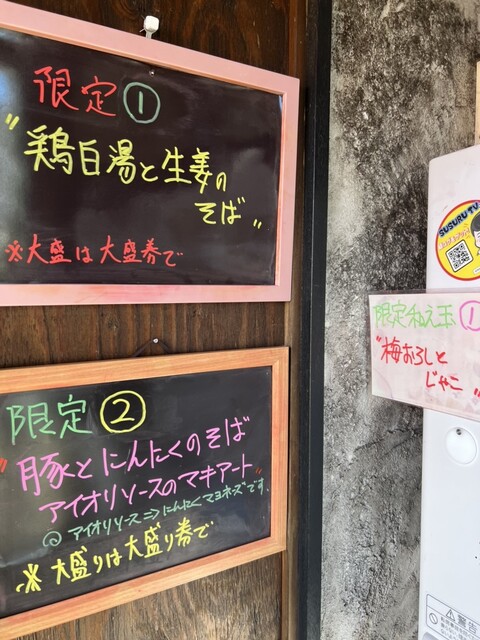 限定①
"鶏白湯と生姜の
そば"
※大盛は大盛券で
限定②
"豚とにんにくのそば
アイオリソースのマキアート"
アイオリソース⇒にんにくマヨネーズです。
※大盛りは大盛り券で
SUSURU TU
限定和え玉①
"梅おろしと
じゃこ"
警告